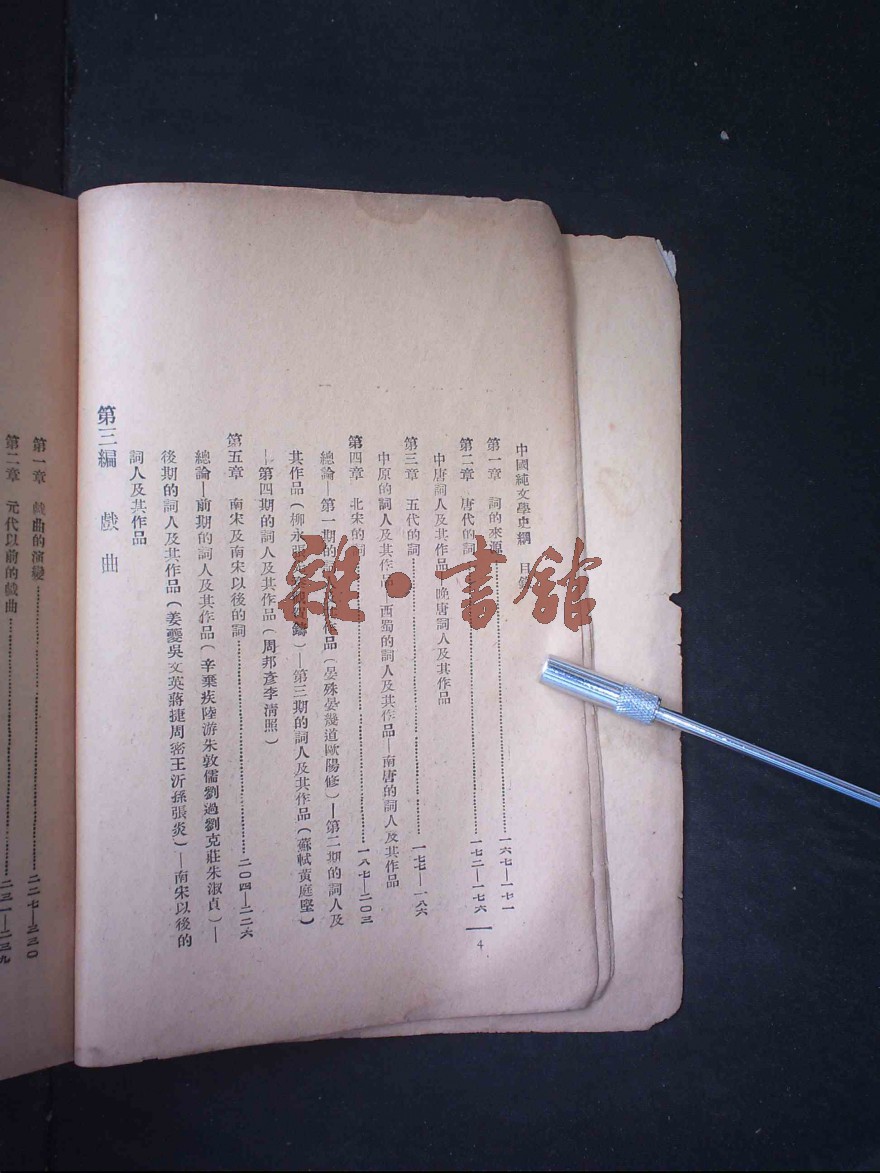 中國純文學史綱 目錄
第一章 詞的來源 一六七—一七一
第二章 唐代的詞 一七二—一七六
中唐詞人及其作品 晚唐詞人及其作品
第三章 五代的詞 一七七—一八六
中原的詞人及其作品 西蜀的詞人及其作品—南唐的詞人及其作品
第四章 北宋的詞 一八七—二〇三
總論—第一期的詞 作品(晏殊晏幾道歐陽修)—第二期的詞人及
其作品(柳永 鑄)—第三期的詞人及其作品(蘇軾黃庭堅)
—第四期的詞人及其作品(周邦彥李清照)
第五章 南宋及南宋以後的詞 二〇四—二二六
總論—前期的詞人及其作品(辛棄疾陸游朱敦儒劉過劉克莊朱淑貞)—
後期的詞人及其作品(姜夔吳文英蔣捷周密王沂孫張炎)—南宋以後的
詞人及其作品
第三編 戲曲
4
第一章 戲曲的演變 二二七—二三〇
第二章 元代以前的戲曲 二三一—二三九
雜·書館